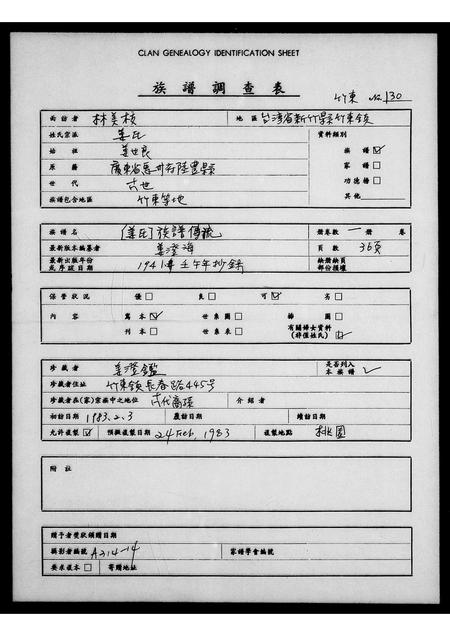 CLAN GENEALOGY IDENTIFICATION SHEET
族譜調查表
竹東 No. 130
面訪者 林美枝 地區 台灣省新竹縣竹東鎮
姓氏宗派 姜氏 資料類別
始祖 姜世良 族譜 ☑
原籍 廣東省惠州府陸豐縣 家譜 □
世代 六世 功德榜 □
族譜包含地區 竹東等地 其他
族譜名 [姜氏]族譜傳流 總卷數 一 卷
最新版本編纂者 姜澄海 頁數 36頁
最新出版年份或序跋日期 1941年壬午年抄錄 缺續缺頁部份損壞
保管狀況 優 □ 良 □ 可 ☑ 劣 □
內容 寫本 ☑ 世系圖 □ 插圖 □
刊本 □ 世系表 □ 有關婦女資料(非僅姓氏) ☑
珍藏者 姜澄鑑 是否列入本族譜 ✓
珍藏者住址 竹東鎮長春路445號
珍藏者在(家)宗族中之地位 六代裔孫 介紹者
初訪日期 1983.2.3 覆訪日期 續訪日期
允許複製 ☑ 預擬複製日期 24 Feb, 1983 複製地點 桃園
附註
贈予者獎狀頒贈日期
攝影者編號 A214-14 家譜學會編號
要求複本 □ 寄贈地址